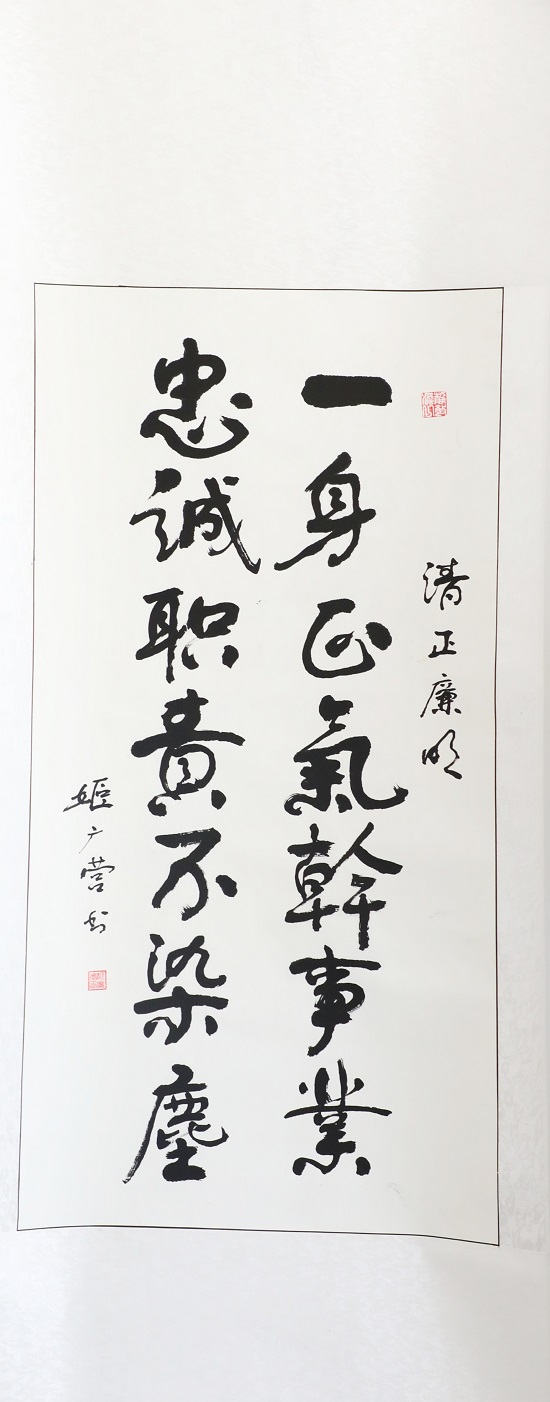 清正廉明
一身正氣幹事業
忠誠职責不染塵
姬广营书